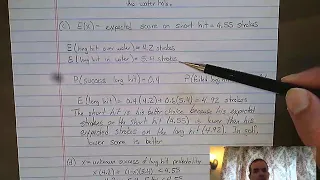 as water hole.
(c) E(x) = expected score on short hit = 4.55 strokes
E(long hit over water) = 4.2 strokes
E(long hit in water) = 5.4 strokes
P(success long hit) = 0.4 P(failed long
E(long hit) = 0.4(4.2) + 0.6(5.4) = 4.92 strokes
The short hit is his better choice because his expected
strokes on the short hit (4.55) is lower than his
expected strokes on the long hit (4.92). In golf,
lower score is better
(d) x = unknown success of long hit probability
x(4.2) + (1-x)(5.4) < 4.55